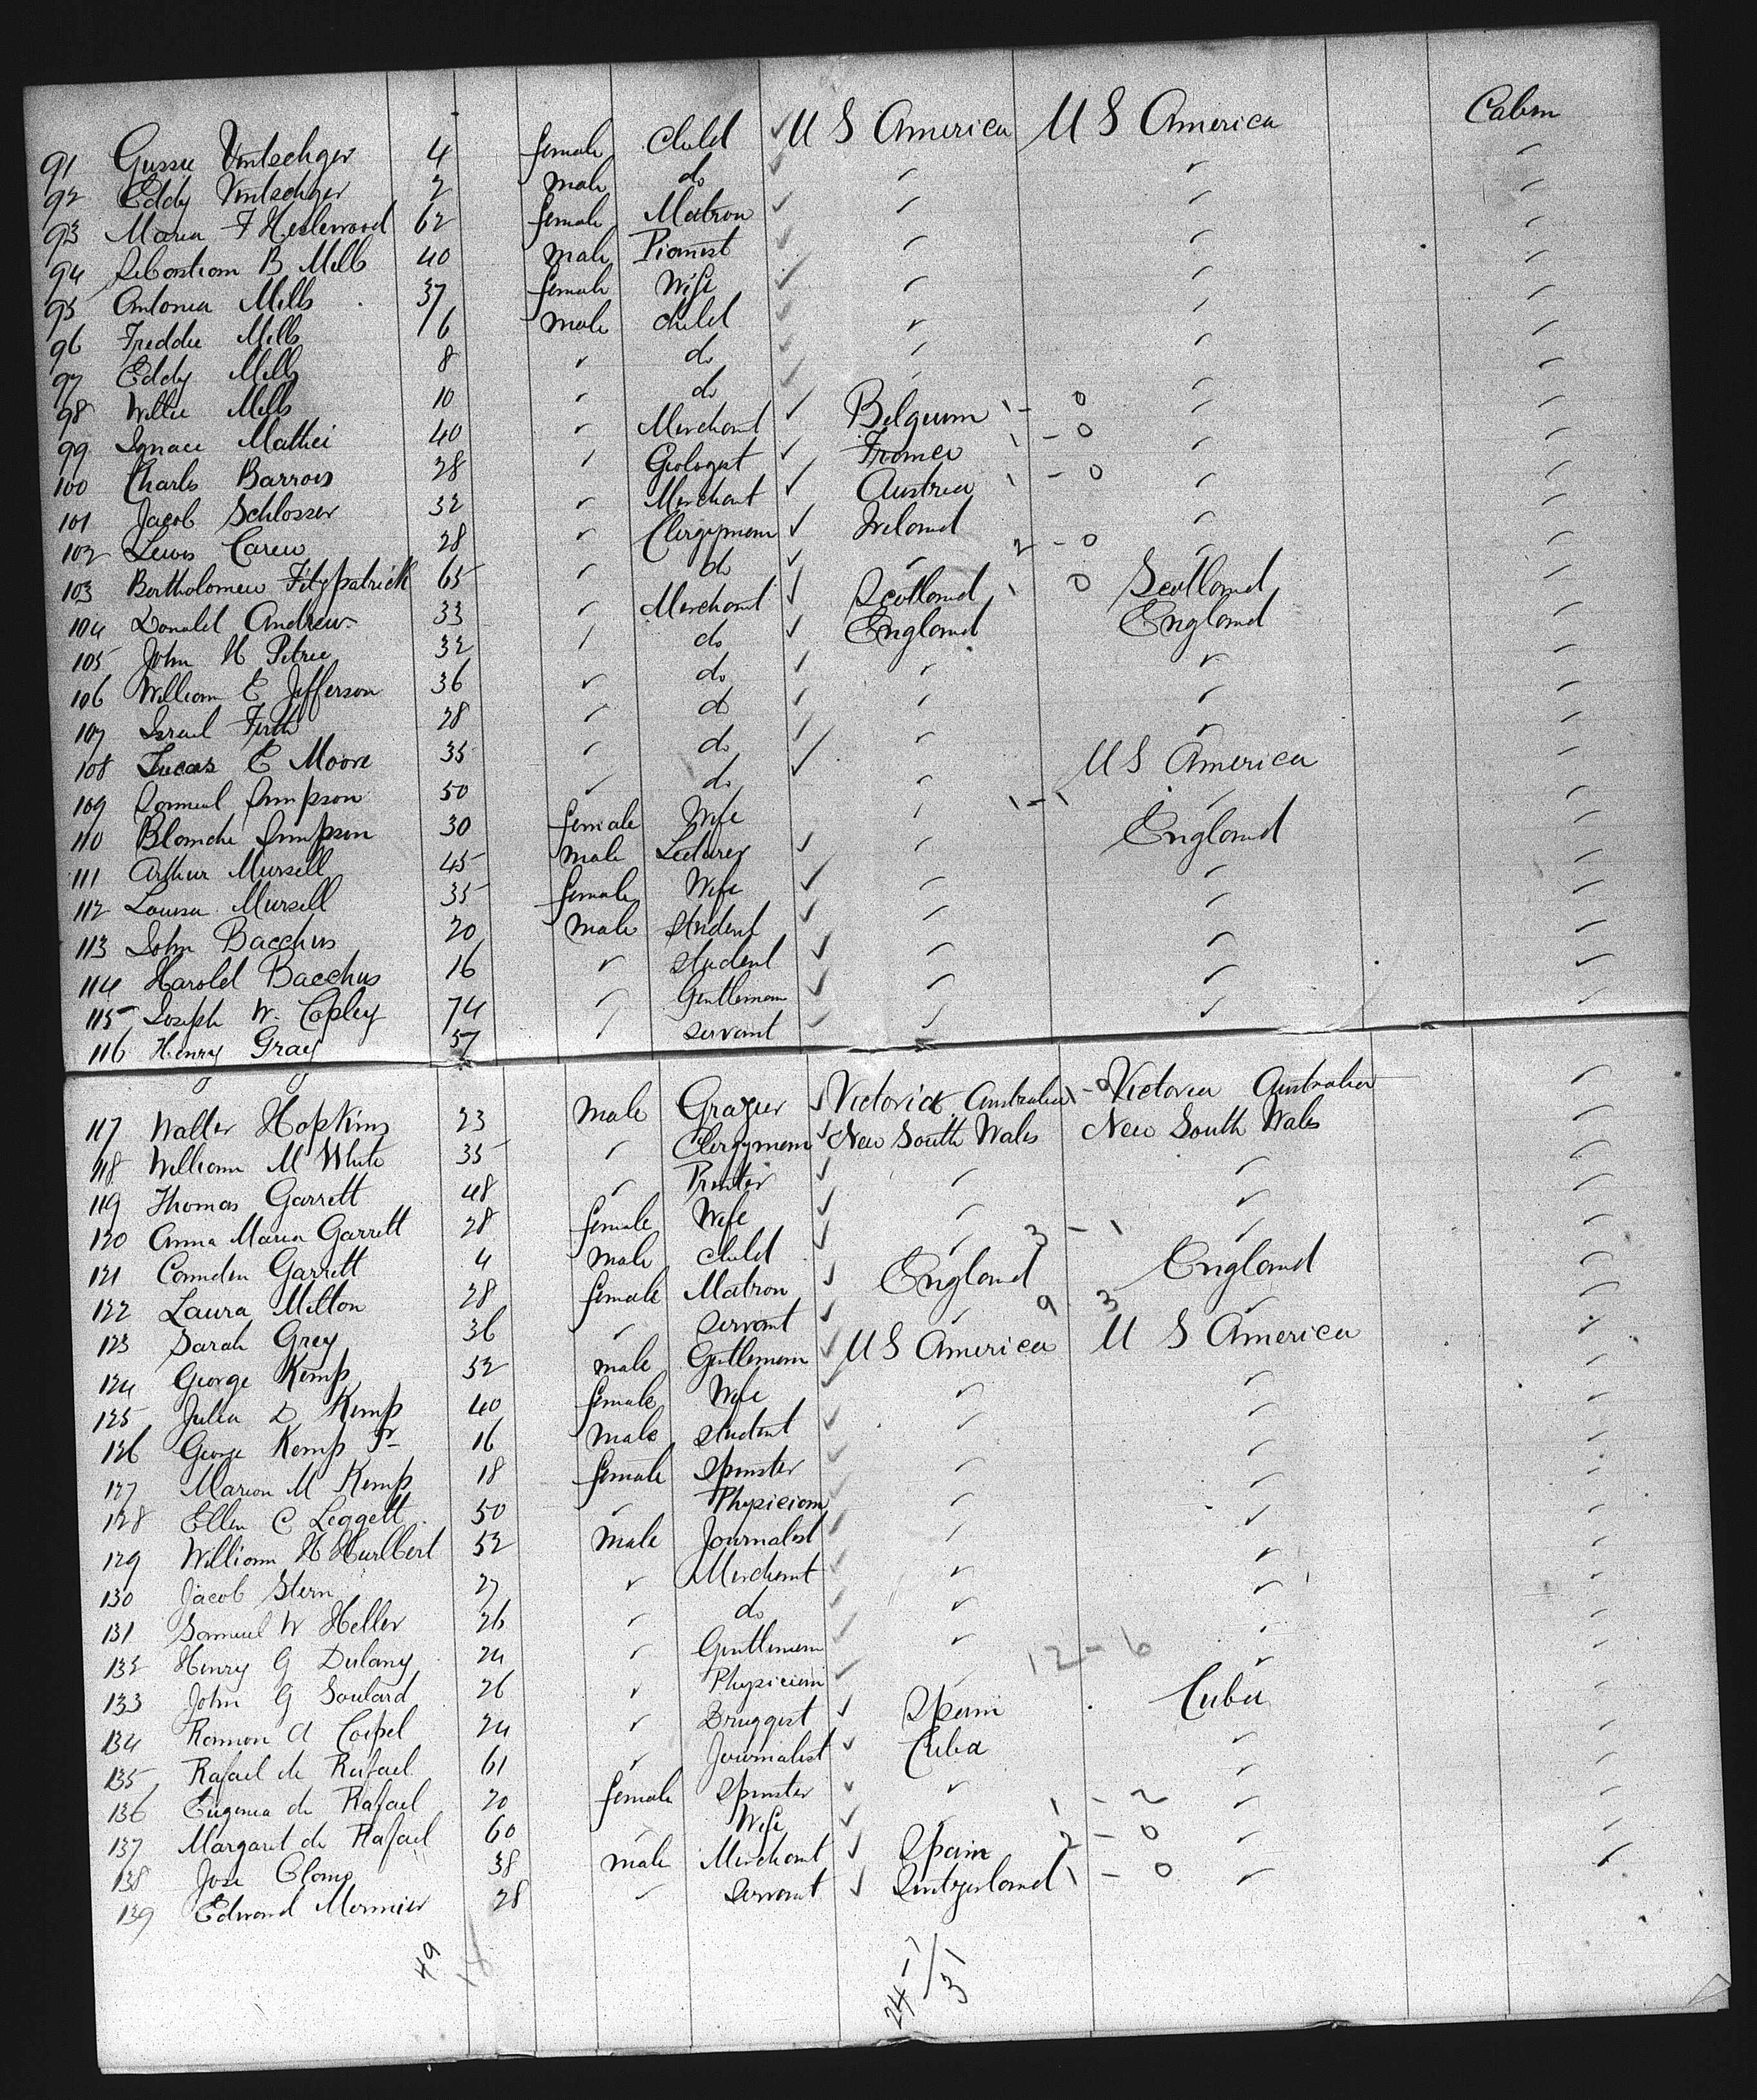 91 Gussie Vintschger 4 female Child ✓ U S America U S America Cabin
92 Eddy Vintschger 2 male do ✓ " " "
93 Maria F Heslewood 62 female Matron ✓ " " "
94 Sebastian B Mills 40 male Pianist ✓ " " "
95 Antonia Mills 37 female Wife ✓ " " "
96 Freddie Mills 6 male child ✓ " " "
97 Eddy Mills 8 " do ✓ " " "
98 Willie Mills 10 " do ✓ " " "
99 Ignace Mathei 40 " Merchant ✓ Belgium 1 - 0 " "
100 Charles Barrois 28 " Geologist ✓ France 1 - 0 " "
101 Jacob Schlosser 32 " Merchant ✓ Austria 1 - 0 " "
102 Lewis Carew 28 " Clergyman ✓ Ireland " "
103 Bartholomew Fitzpatrick 65 " do ✓ " 2 - 0 " "
104 Donald Andrew 33 " Merchant ✓ Scotland 1 0 Scotland "
105 John H Petrie 32 " do ✓ England England "
106 William E Jefferson 36 " do ✓ " " "
107 Israel Firth 28 " do ✓ " " "
108 Lucas E Moore 35 " do ✓ " " "
109 Samuel Simpson 50 " do ✓ " U S America "
110 Blanche Simpson 30 female Wife " 1 - 1 " "
111 Arthur Mursell 45 male Lecturer ✓ " England "
112 Louisa Mursell 35 female Wife ✓ " " "
113 John Bacchus 20 male Student ✓ " " "
114 Harold Bacchus 16 " student ✓ " " "
115 Joseph W. Copley 74 " Gentleman ✓ " " "
116 Henry Gray 57 " servant ✓ " " "
117 Walter Hopkins 23 male Grazier ✓ Victoria Australia 1 - 0 Victoria Australia "
118 William M White 35 " Clergyman ✓ New South Wales New South Wales "
119 Thomas Garrett 48 " Printer ✓ " " "
120 Anna Maria Garrett 28 female Wife ✓ " " "
121 Camden Garrett 4 male child ✓ " 3 - 1 " "
122 Laura Milton 28 female Matron ✓ England England "
123 Sarah Grey 36 " servant ✓ " 9 3 " "
124 George Kemp 52 male Gentleman ✓ U S America U S America "
125 Julia D Kemp 40 female Wife ✓ " " "
126 George Kemp Jr 16 male student ✓ " " "
127 Marion M Kemp 18 female Spinster ✓ " " "
128 Ellen C Leggett 50 " Physician ✓ " " "
129 William H Hurlbert 52 male Journalist ✓ " " "
130 Jacob Stern 27 " Merchant ✓ " " "
131 Samuel W Heller 26 " do ✓ " " "
132 Henry G Dulany 24 " Gentleman ✓ " " "
133 John G Soulard 26 " Physician ✓ " 12 - 6 " "
134 Ramon A 24 " Druggist ✓ Spain Cuba "
135 Rafael de Rafael 61 " Journalist ✓ Cuba " "
136 Eugenia de Rafael 20 female Spinster ✓ " " "
137 Margaret de Rafael 60 " Wife ✓ " 1 - 2 " "
138 Jose 38 male Merchant ✓ Spain 2 - 0 " "
139 Edward Mermier 28 " servant ✓ Switzerland 1 - 0 " "
49 18
24 - 7 / 31